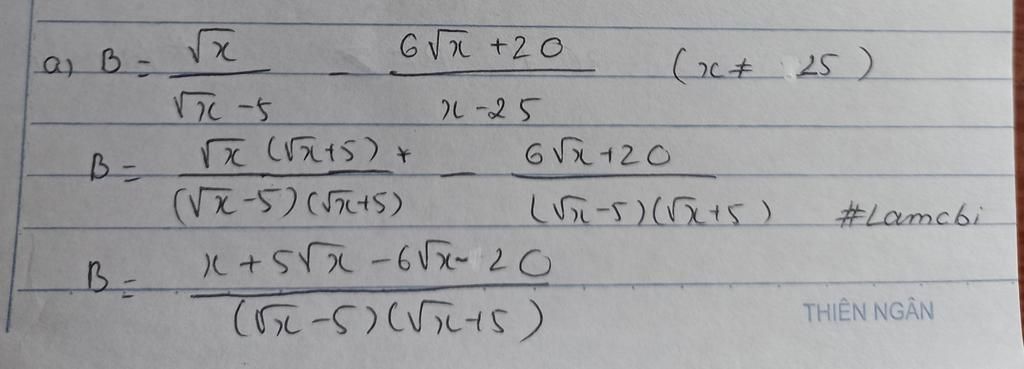 a) B = √x / (√x - 5) - (6√x + 20) / (x - 25) (x ≠ 25)
B = √x (√x+5) / (√x-5)(√x+5) - (6√x+20) / (√x-5)(√x+5) #Lamchi
B = (x + 5√x - 6√x - 20) / (√x-5)(√x+5)
THIÊN NGÂN